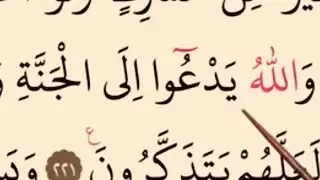 وَاللّٰهُ يَدْعُوٓا إِلَى الْجَنَّةِ وَ
لَعَلَّهُمْ يَتَذَكَّرُونَ ۝٢٢١ ع